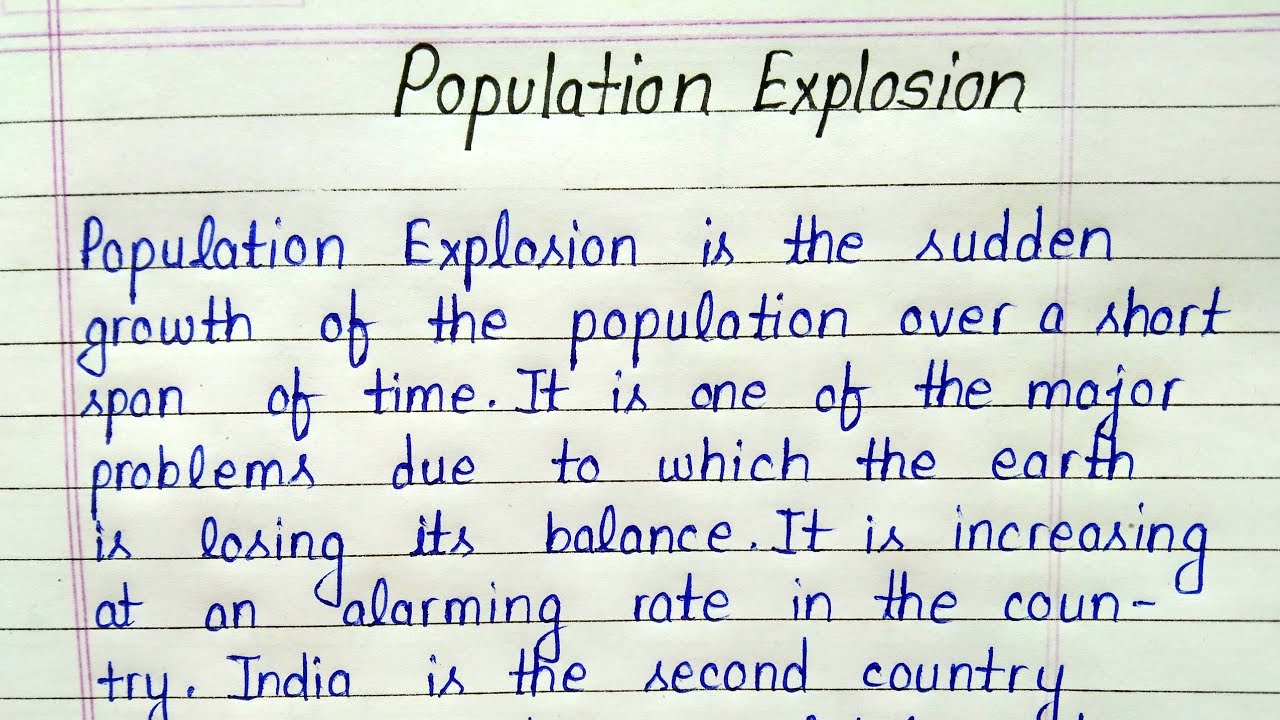 Population Explosion
Population Explosion is the sudden
growth of the population over a short
span of time. It is one of the major
problems due to which the earth
is losing its balance. It is increasing
at an alarming rate in the coun-
try. India is the second country